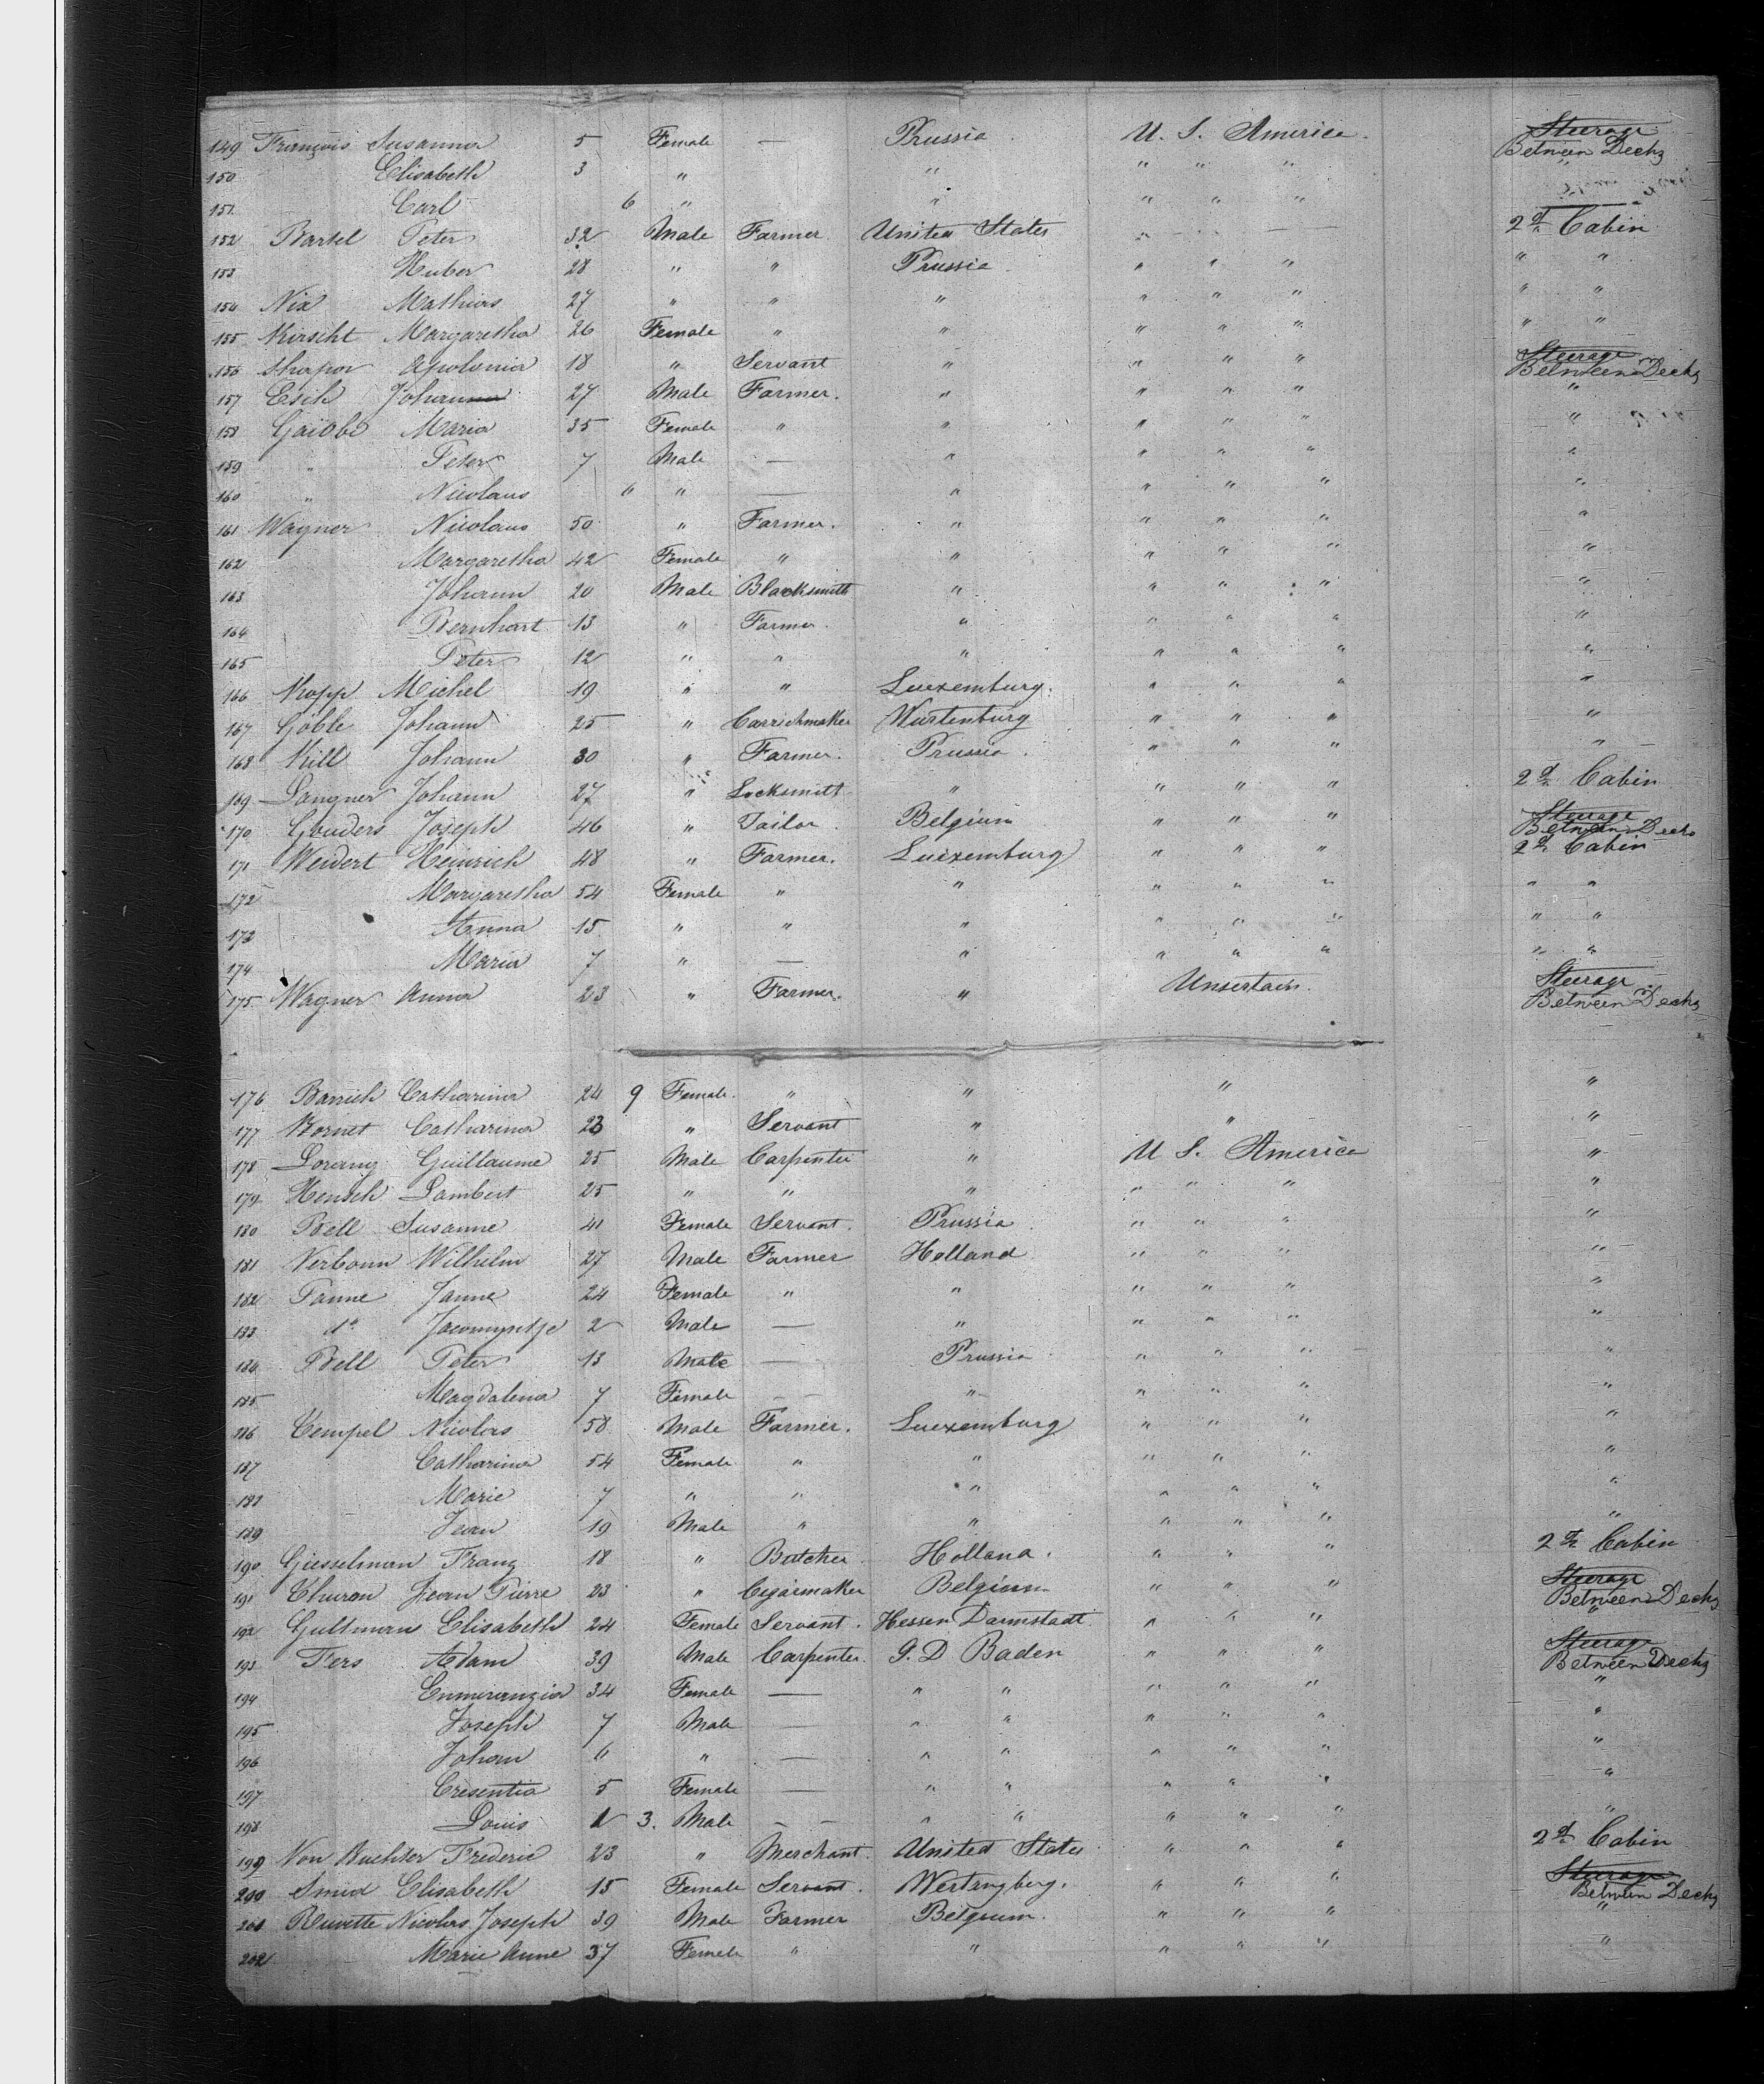 149 François Susanna 5 Female — Prussia U. S. America Steerage Between Decks
150 Elisabeth 3 " " " " " "
151 Carl 6 " " " " "
152 Bartel Peter 32 Male Farmer United States " — — 2d Cabin
153 Huber 28 " " Prussia " " " " "
154 Nix Mathias 27 " " " " " " " "
155 Kirscht Margaretha 26 Female " " " " " " "
156 Apolonia 18 " Servant " " " " Steerage Between Decks
157 Esch Johanna 27 Male Farmer. " " " " "
158 Maria 35 Female " " " " " "
159 " Peter 7 Male — " " " " "
160 " Nicolaus 6 " — " " " " "
161 Wagner Nicolaus 50 " Farmer. " " " " "
162 Margaretha 42 Female " " " " " "
163 Johann 20 Male Blacksmith " " " " "
164 Bernhart 13 " Farmer. " " " " "
165 Peter 12 " " " " " " "
166 Kopp Michel 19 " " Luexemburg. " " " "
167 Göble Johann 25 " Carrichmaker Wurtenburg " " " "
168 Kill Johann 30 " Farmer. Prussia. " " " "
169 Langner Johann 27 " Locksmith " " " " 2d Cabin
170 Gouders Joseph 46 " Tailor. Belgium " " " Steerage Between Decks
171 Weidert Heinrich 48 " Farmer. Luexemburg " " " 2d Cabin
172 Margaretha 54 Female " " " " " " "
173 Anna 15 " " " " " " " "
174 Maria 7 " — " " " " " "
175 Wagner Anna 23 " Farmer. " Unsertain. Steerage Between Decks
176 Catharina 24 9 Female. " " " "
177 Bornet Catharina 23 " Servant " " "
178 Lorang Guillaume 25 Male Carpenter " U S. America "
179 Hensch Lambert 25 " " " " " " "
180 Bell Susanne 41 Female Servant. Prussia " " " "
181 Wilhelm 27 Male Farmer Holland " " " "
182 Fanne Janne 24 Female " " " " " "
183 2 Male — " " " " "
184 Bell Peter 13 Male — Prussia " " " "
185 Magdalena 7 Female — " " " " "
186 Tempel Nicolas 58 Male Farmer. Luexemburg " " " "
187 Catharina 54 Female " " " " " "
188 Marie 7 " " " " " " "
189 Jean 19 Male " " " " " "
190 Giesselman Franz 18 " Butcher Holland. " " " 2d Cabin
191 Churon Jean Pierre 23 " Cigarmaker Belgium " " " Steerage Between Decks
192 Gultman Elisabeth 24 Female Servant. Hessen Darmstadt " " " "
193 Fers Adam 39 Male Carpenter. G. D Baden " " " Steerage Between Decks
194 34 Female — " " " " " "
195 Joseph 7 Male — " " " " " "
196 Johan 6 " — " " " " " "
197 Cresentia 5 Female — " " " " " "
198 Louis 1 3. Male — " " " " " "
199 Von Frederic 23 " Merchant. United States " " " 2d Cabin
200 Smid Elisabeth 15 Female Servant. " " " Steerage Between Decks
201 Nicolas Joseph 39 Male Farmer Belgium. " " " "
202 Marie Anne 37 Female " " " " " "